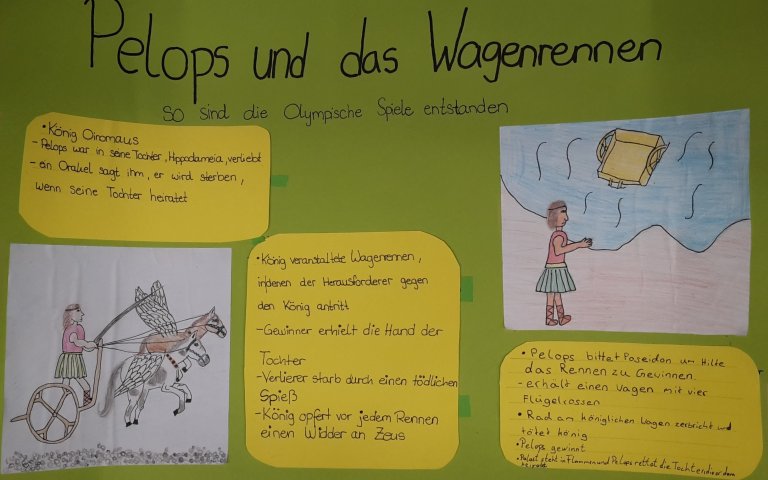 Pelops und das Wagenrennen
so sind die Olympische Spiele entstanden
• König Oinomaus
- Pelops war in seine Tochter, Hippodameia, verliebt
- ein Orakel sagt ihm, er wird sterben,
wenn seine Tochter heiratet
• König veranstaltete Wagenrennen,
in denen der Herausforderer gegen
den König antritt
- Gewinner erhielt die Hand der
Tochter
- Verlierer starb durch einen tödlichen
Spieß
- König opfert vor jedem Rennen
einen Widder an Zeus
• Pelops bittet Poseidon um Hilfe
das Rennen zu Gewinnen
- erhält einen Wagen mit vier
Flügelrossen
• Rad am königlichen Wagen zerbricht und
tötet könig
• Pelops gewinnt
• Palast steht in Flammen und Pelops rettet die Tochter